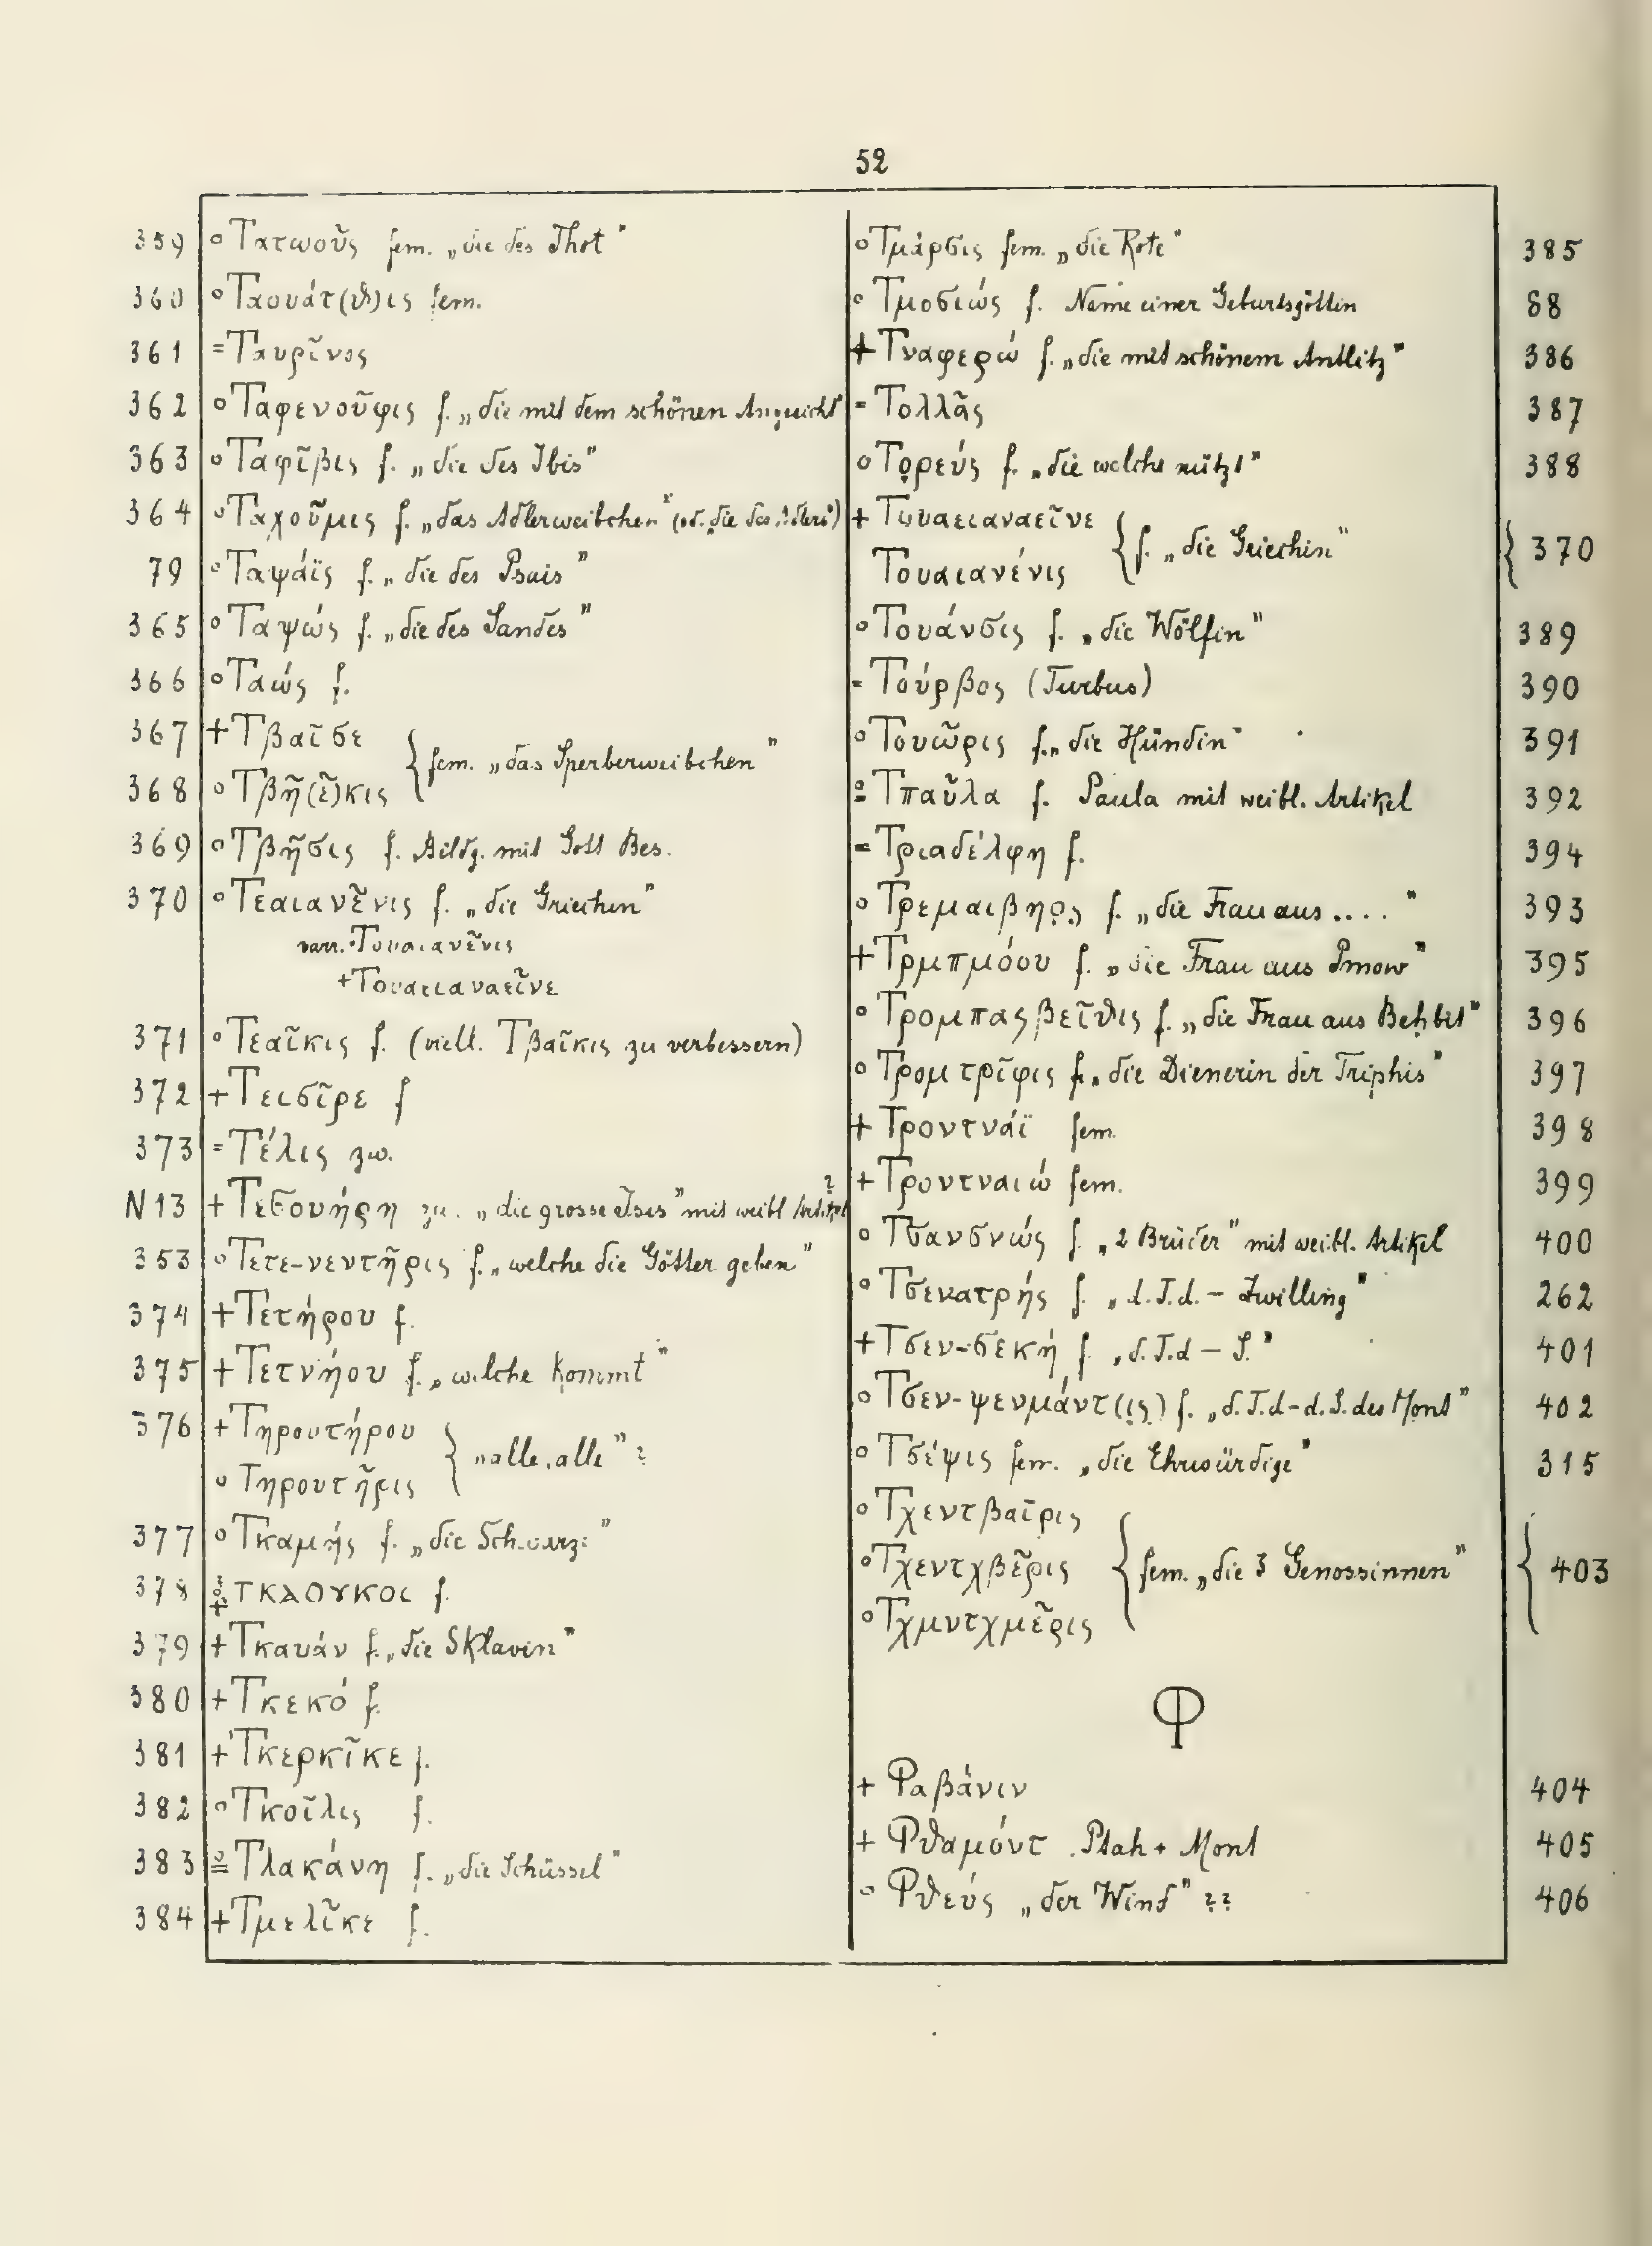 52
359 ° Τατωοῦς fem. „die des Thot"
360 ° Ταουάτ(ϑ)ις fem.
361 = Ταυρῖνος
362 ° Ταφενοῦφις f. „die mit dem schönen Angesicht"
363 ° Ταφῖβις f. „die des Ibis"
364 ° Ταχοῦμις f. „das Adlerweibchen" (od. die des Adlers)
79 ° Ταψάϊς f. „die des Psais"
365 ° Ταψώς f. „die des Sandes"
366 ° Ταώς f.
367 + Τβαῖσε
{ fem. „das Sperberweibchen"
368 ° Τβῆ(ὲ)κις
369 ° Τβῆσις f. Bildg. mit Gott Bes.
370 ° Τεαιανῆνις f. „die Griechin"
varr. ° Τουαιανῆνις
+ Τουαειαναεῖνε
371 ° Τεαῖκις f. (viell. Τβαῖκις zu verbessern)
372 + Τεισῖρε f
373 = Τέλις zw.
N 13 + Τεσουήρη zw. „die grosse Isis" mit weibl Artikel ?
353 ° Τετε-νεντῆρις f. „welche die Götter geben"
374 + Τετήρου f.
375 + Τετνήου f. „welche kommt"
376 + Τηρουτήρου
} „alle, alle" ?
° Τηρουτῆρις
377 ° Τκαμής f. „die Schwarze"
378 ΤΚΑΟΥΚΟC f.
379 + Τκαυάν f. „die Sklavin"
380 + Τκεκό f.
381 + Τκερκῖκε f.
382 ° Τκοῖλις f.
383 Τλακάνη f. „die Schüssel"
384 + Τμελῖκε f.
° Τμάρσις fem. „die Rote" 385
° Τμοσιώς f. Name einer Geburtsgöttin 88
+ Τναφερώ f. „die mit schönem Antlitz" 386
= Τολλᾶς 387
° Τορεύς f. „die welche nützt" 388
+ Τουαειαναεῖνε
{ f. „die Griechin" } 370
Τουαιανένις
° Τουάνσις f. „die Wölfin" 389
= Τούρβος (Turbus) 390
° Τουῶρις f. „die Hündin" 391
Τπαῦλα f. Paula mit weibl. Artikel 392
= Τριαδέλφη f. 394
° Τρεμαιβηρς f. „die Frau aus ...." 393
+ Τρμπμόου f. „die Frau aus Pmow" 395
° Τρομπασβεῖϑις f. „die Frau aus Beḥbit" 396
° Τρομτρῖφις f. „die Dienerin der Triphis" 397
+ Τροντνάϊ fem. 398
+ Τροντναιώ fem. 399
° Τσανσνώς f. „2 Brüder" mit weibl. Artikel 400
° Τσενατρής f. „d. T. d. – Zwilling" 262
+ Τσεν-σεκή f. „d. T. d – S." 401
° Τσεν-ψενμάντ(ις) f. „d. T. d – d. S. des Mont" 402
° Τσέψις fem. „die Ehrwürdige" 315
° Τχεντβαῖρις
° Τχεντχβῆρις { fem. „die 3 Genossinnen" { 403
° Τχμντχμῆρις
Φ
+ Φαβάνιν 404
+ Φϑαμόντ Ptah + Mont 405
° Φϑεύς „der Wind" ?? 406